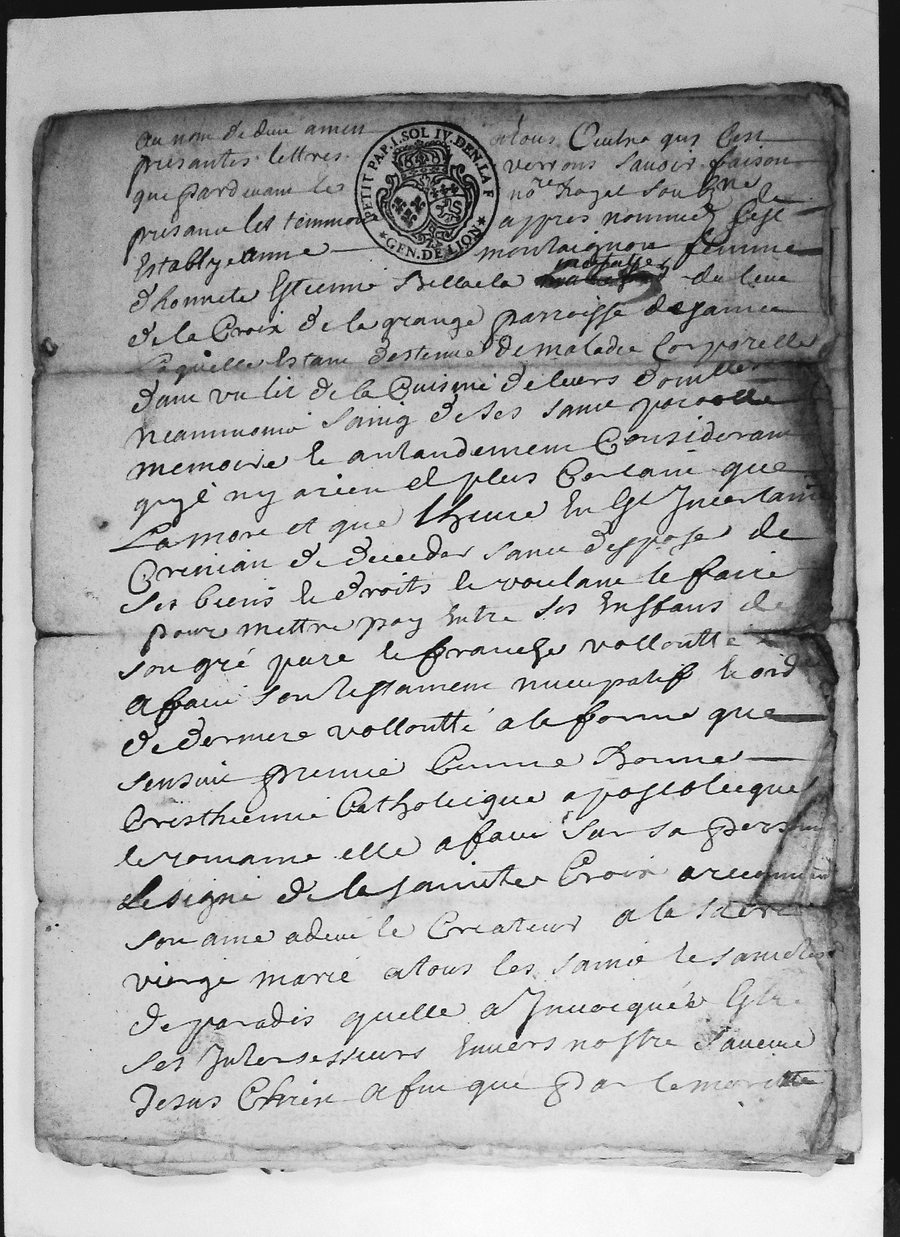 au nom de dieu amen atous Ceulx qui Ces
presantes lettres verrons savoir faison
que pardevant le no.re Royal soub.ne
presans les temmoins appres nommez sest
Establye anne montaignon femme
d'honnete Estienne du lieu
de la Croix de la grange parroisse de
Laquelle Estant destenue de maladie Corporelle
dans un lit de la Cuisine de leurs domille
neanmoins saing de ses sans parolle
memoire le antandement Considerant
quil ny a rien de plus Certain que
La mort et que lheure En Est Incertaine
Crenian de deceder sans disposer de
ses biens le droits le voulant le faire
pour mettre pay Entre ses Enffans de
son gré pure le franche vollontté
a faict son testament nuncupatif le ord
de derniere vollontté a la forme que
sensuit premie Comme Bonne
Cresthienne Catholicque apostolicque
le romaine elle a faict sur sa person
Le signe de la sainte Croix a recomm
son ame a dieu le Createur a la sacre
vierge marie a tous les saints le saintes
de paradis quelle a Invocquée Estre
ses Intersesseurs Envers nostre Sauveur
Jesus Christ afin que par le meritte
PETIT PAP. 1. SOL IV. DEN. LA F
GEN. DE LION